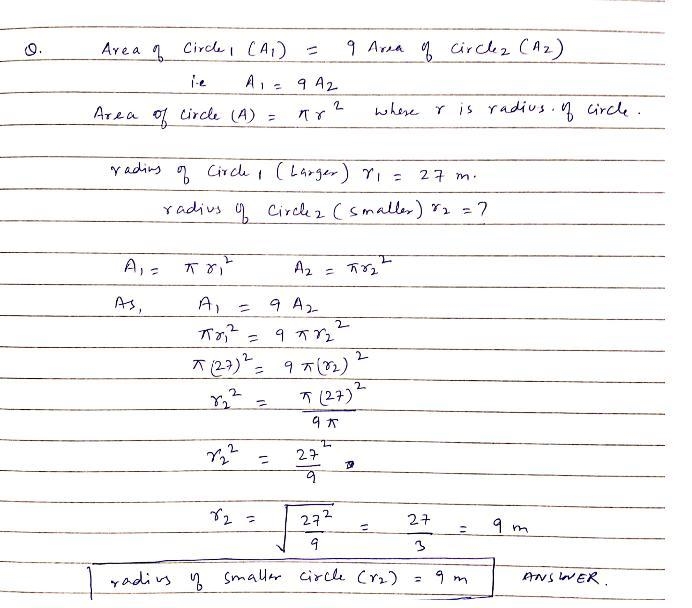 Q. Area of Circle1 (A1) = 9 Area of Circle2 (A2)
i.e A1 = 9 A2
Area of Circle (A) = πr² where r is radius. of circle.
radius of Circle1 (Larger) r1 = 27 m.
radius of Circle2 (smaller) r2 = ?
A1 = πr1² A2 = πr2²
As, A1 = 9 A2
πr1² = 9πr2²
π(27)² = 9π(r2)²
r2² = π(27)² / 9π
r2² = 27² / 9
r2 = √(27² / 9) = 27 / 3 = 9 m
radius of smaller circle (r2) = 9 m ANSWER.